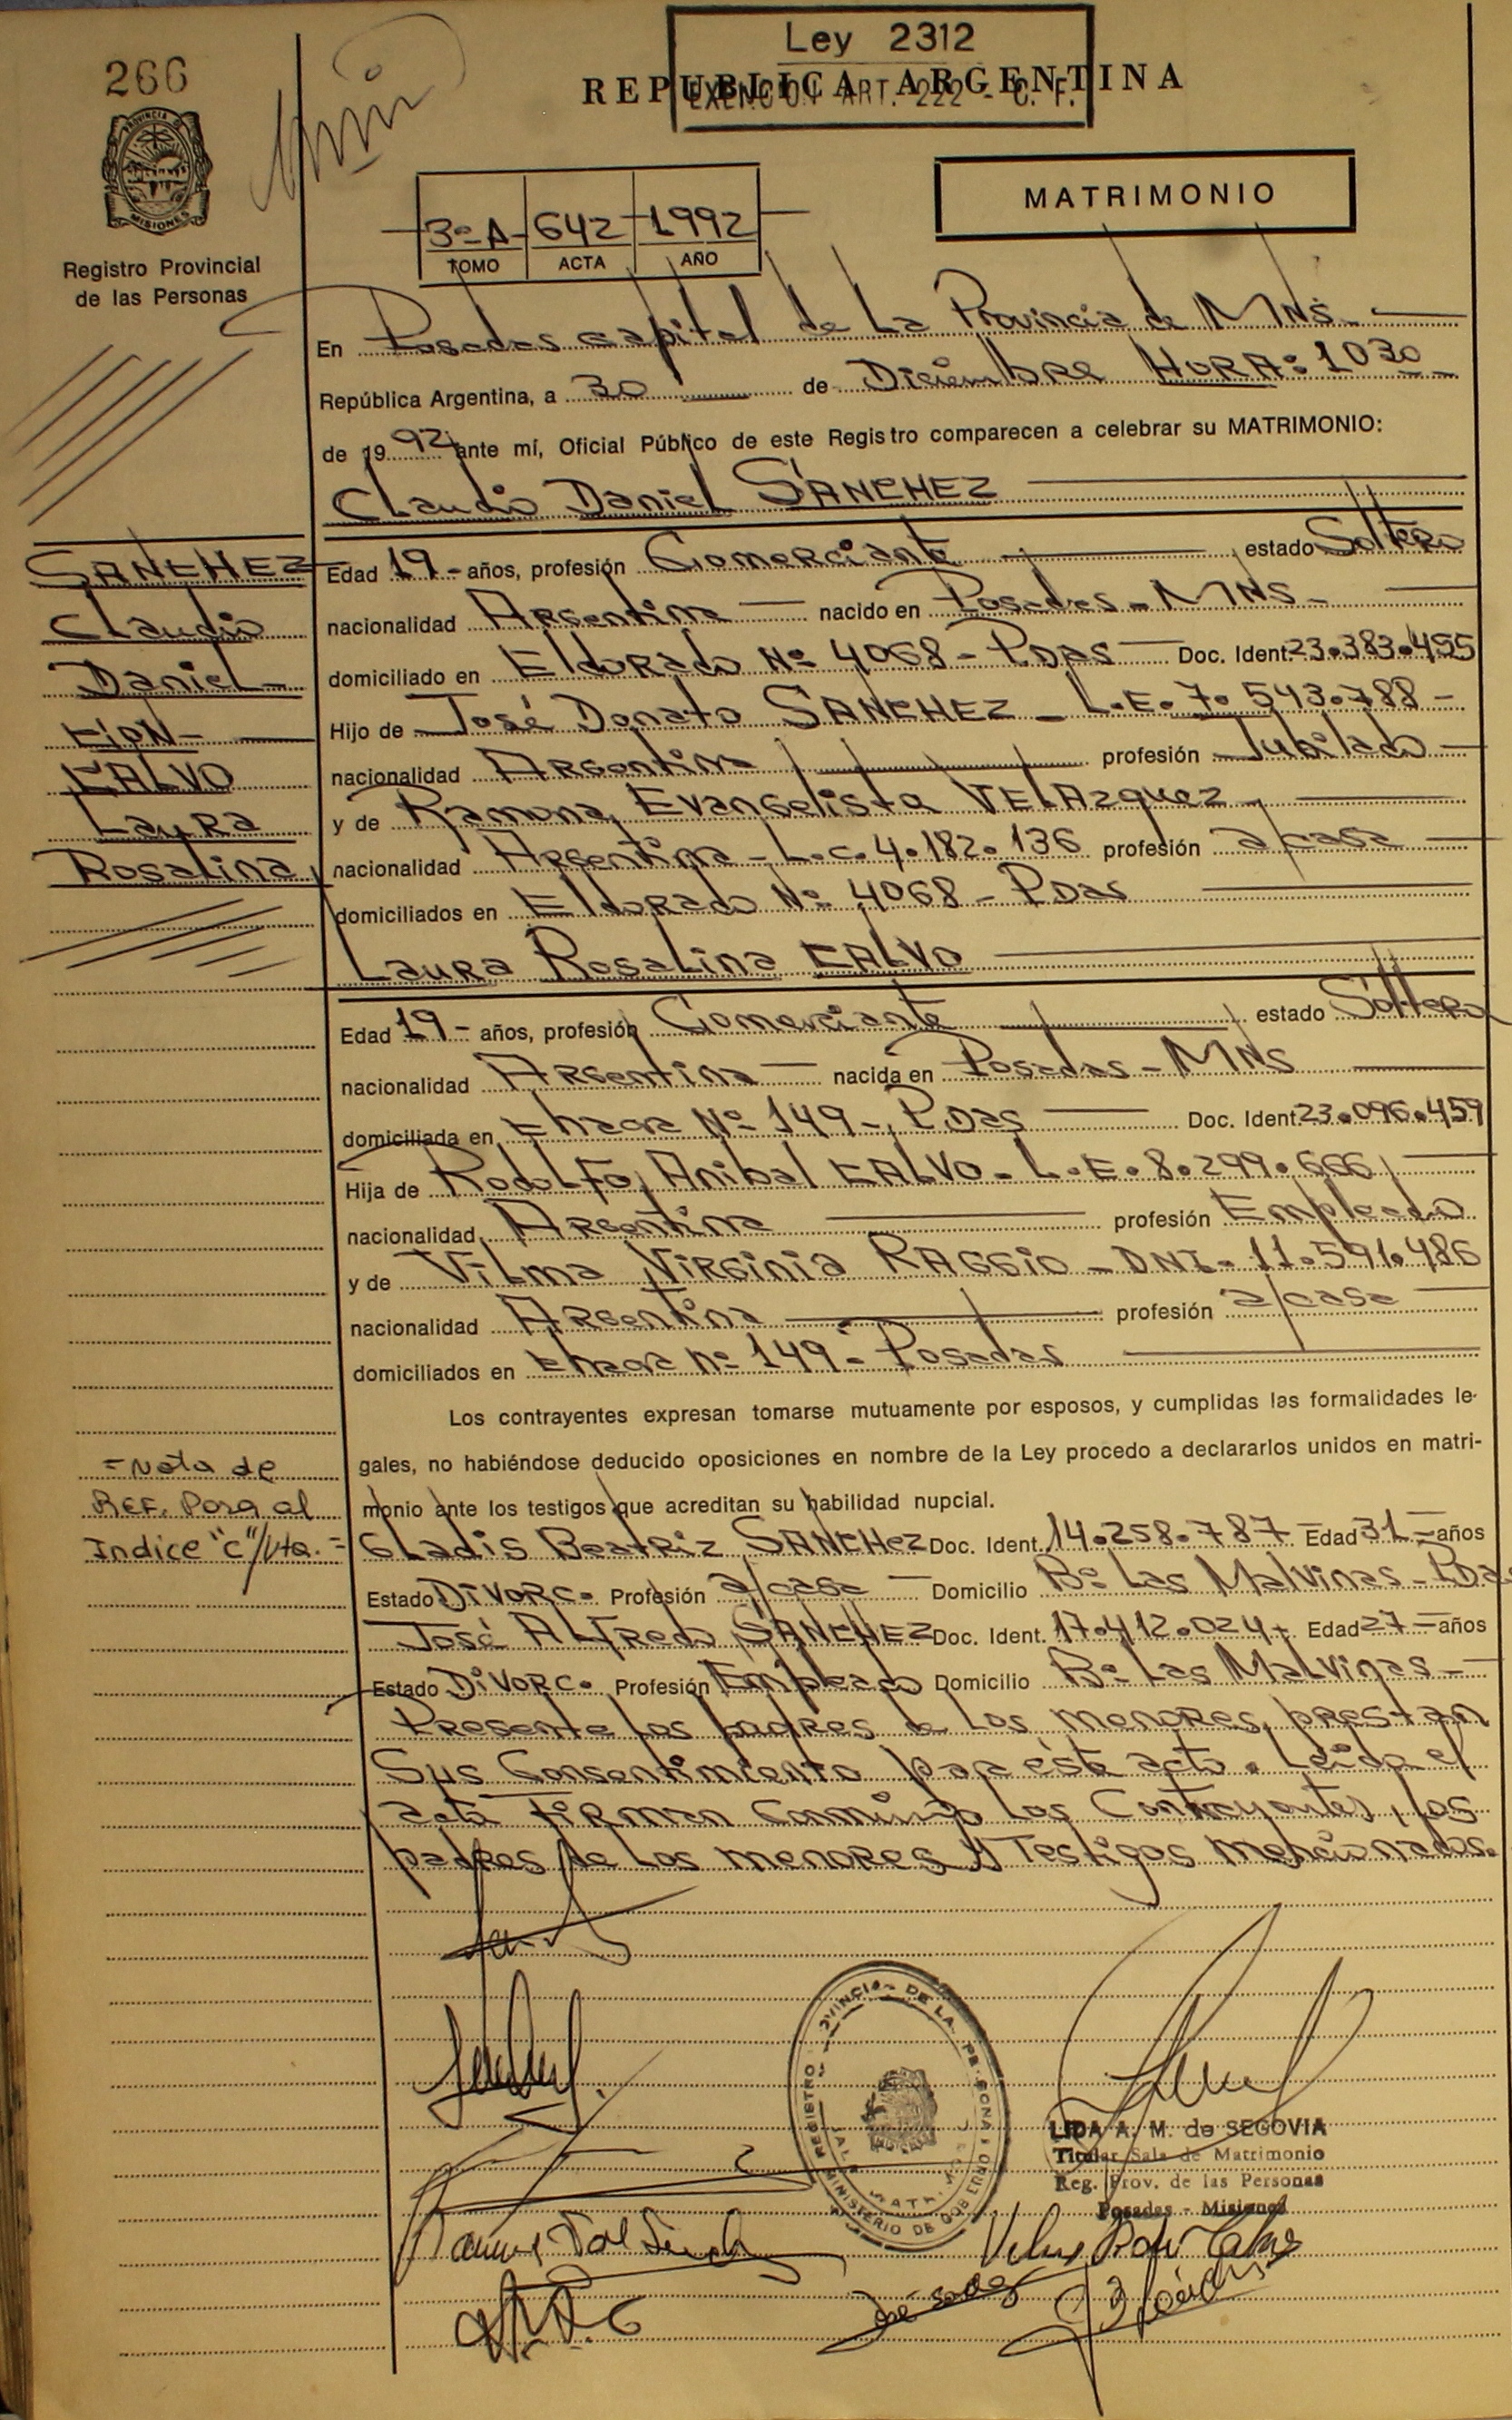 266
Ley 2312
REPUBLICA ARGENTINA
EXENCION ART. 222 - C. F.
PROVINCIA D
MISIONES
Registro Provincial
de las Personas
MATRIMONIO
3º-A- 642 1992
TOMO ACTA AÑO
En Posadas capital de La Provincia de MNS.
República Argentina, a 30 de Diciembre HORA: 1030
de 1992 ante mí, Oficial Público de este Registro comparecen a celebrar su MATRIMONIO:
Claudio Daniel SANCHEZ
SANCHEZ
Claudio
Daniel
CALVO
Laura
Rosalina
Edad 19- años, profesión Comerciante estado Soltero
nacionalidad Argentina nacido en Posadas - MNS-
domiciliado en Eldorado Nº 4068 - Pdas Doc. Ident. 23.383.455
Hijo de José Donato SANCHEZ - L.E. 7.543.788-
nacionalidad Argentina profesión Jubilado
y de Ramona Evangelista VELAZquez
nacionalidad Argentina - L.C. 4.182.136 profesión a/casa
domiciliados en Eldorado Nº 4068 - Pdas
Laura Rosalina CALVO
Edad 19- años, profesión Comerciante estado Soltera
nacionalidad Argentina nacida en Posadas - MNS
domiciliada en Chacra Nº 149 - Pdas Doc. Ident. 23.096.459
Hija de Rodolfo Anibal CALVO - L.E. 8.299.666
nacionalidad Argentina profesión Empleado
y de Vilma Virginia RAGGIO - DNI. 11.591.486
nacionalidad Argentina profesión a/casa
domiciliados en Chacra nº 149 - Posadas
Los contrayentes expresan tomarse mutuamente por esposos, y cumplidas las formalidades le-
gales, no habiéndose deducido oposiciones en nombre de la Ley procedo a declararlos unidos en matri-
monio ante los testigos que acreditan su habilidad nupcial.
=Nota de
REF. Para al
Indice "C"/Vta.=
Gladis Beatriz SANCHEZ Doc. Ident. 14.258.787 Edad 31 años
Estado Divorc. Profesión a/casa Domicilio Bº Las Malvinas - Pdas
José Alfredo SANCHEZ Doc. Ident. 17.412.024- Edad 27 años
Estado Divorc. Profesión Empleado Domicilio Bº Las Malvinas-
Presente los padres de los menores, prestan
Sus Consentimiento para éste acto. Leida el
acta firman Conmigo los Contrayentes, los
padres de los menores y Testigos mencionados.
LIDA A. M. de SEGOVIA
Titular Sala de Matrimonio
Reg. Prov. de las Personas
Posadas - Misiones